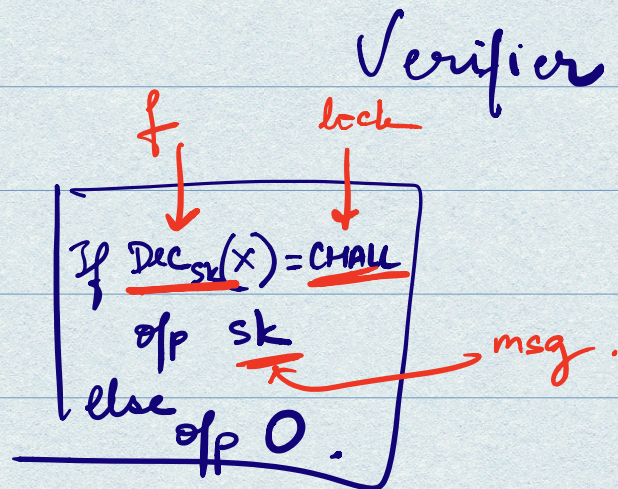 Verifier
f lock
If Dec_sk(x) = CHALL
o/p sk
msg.
else
o/p 0.